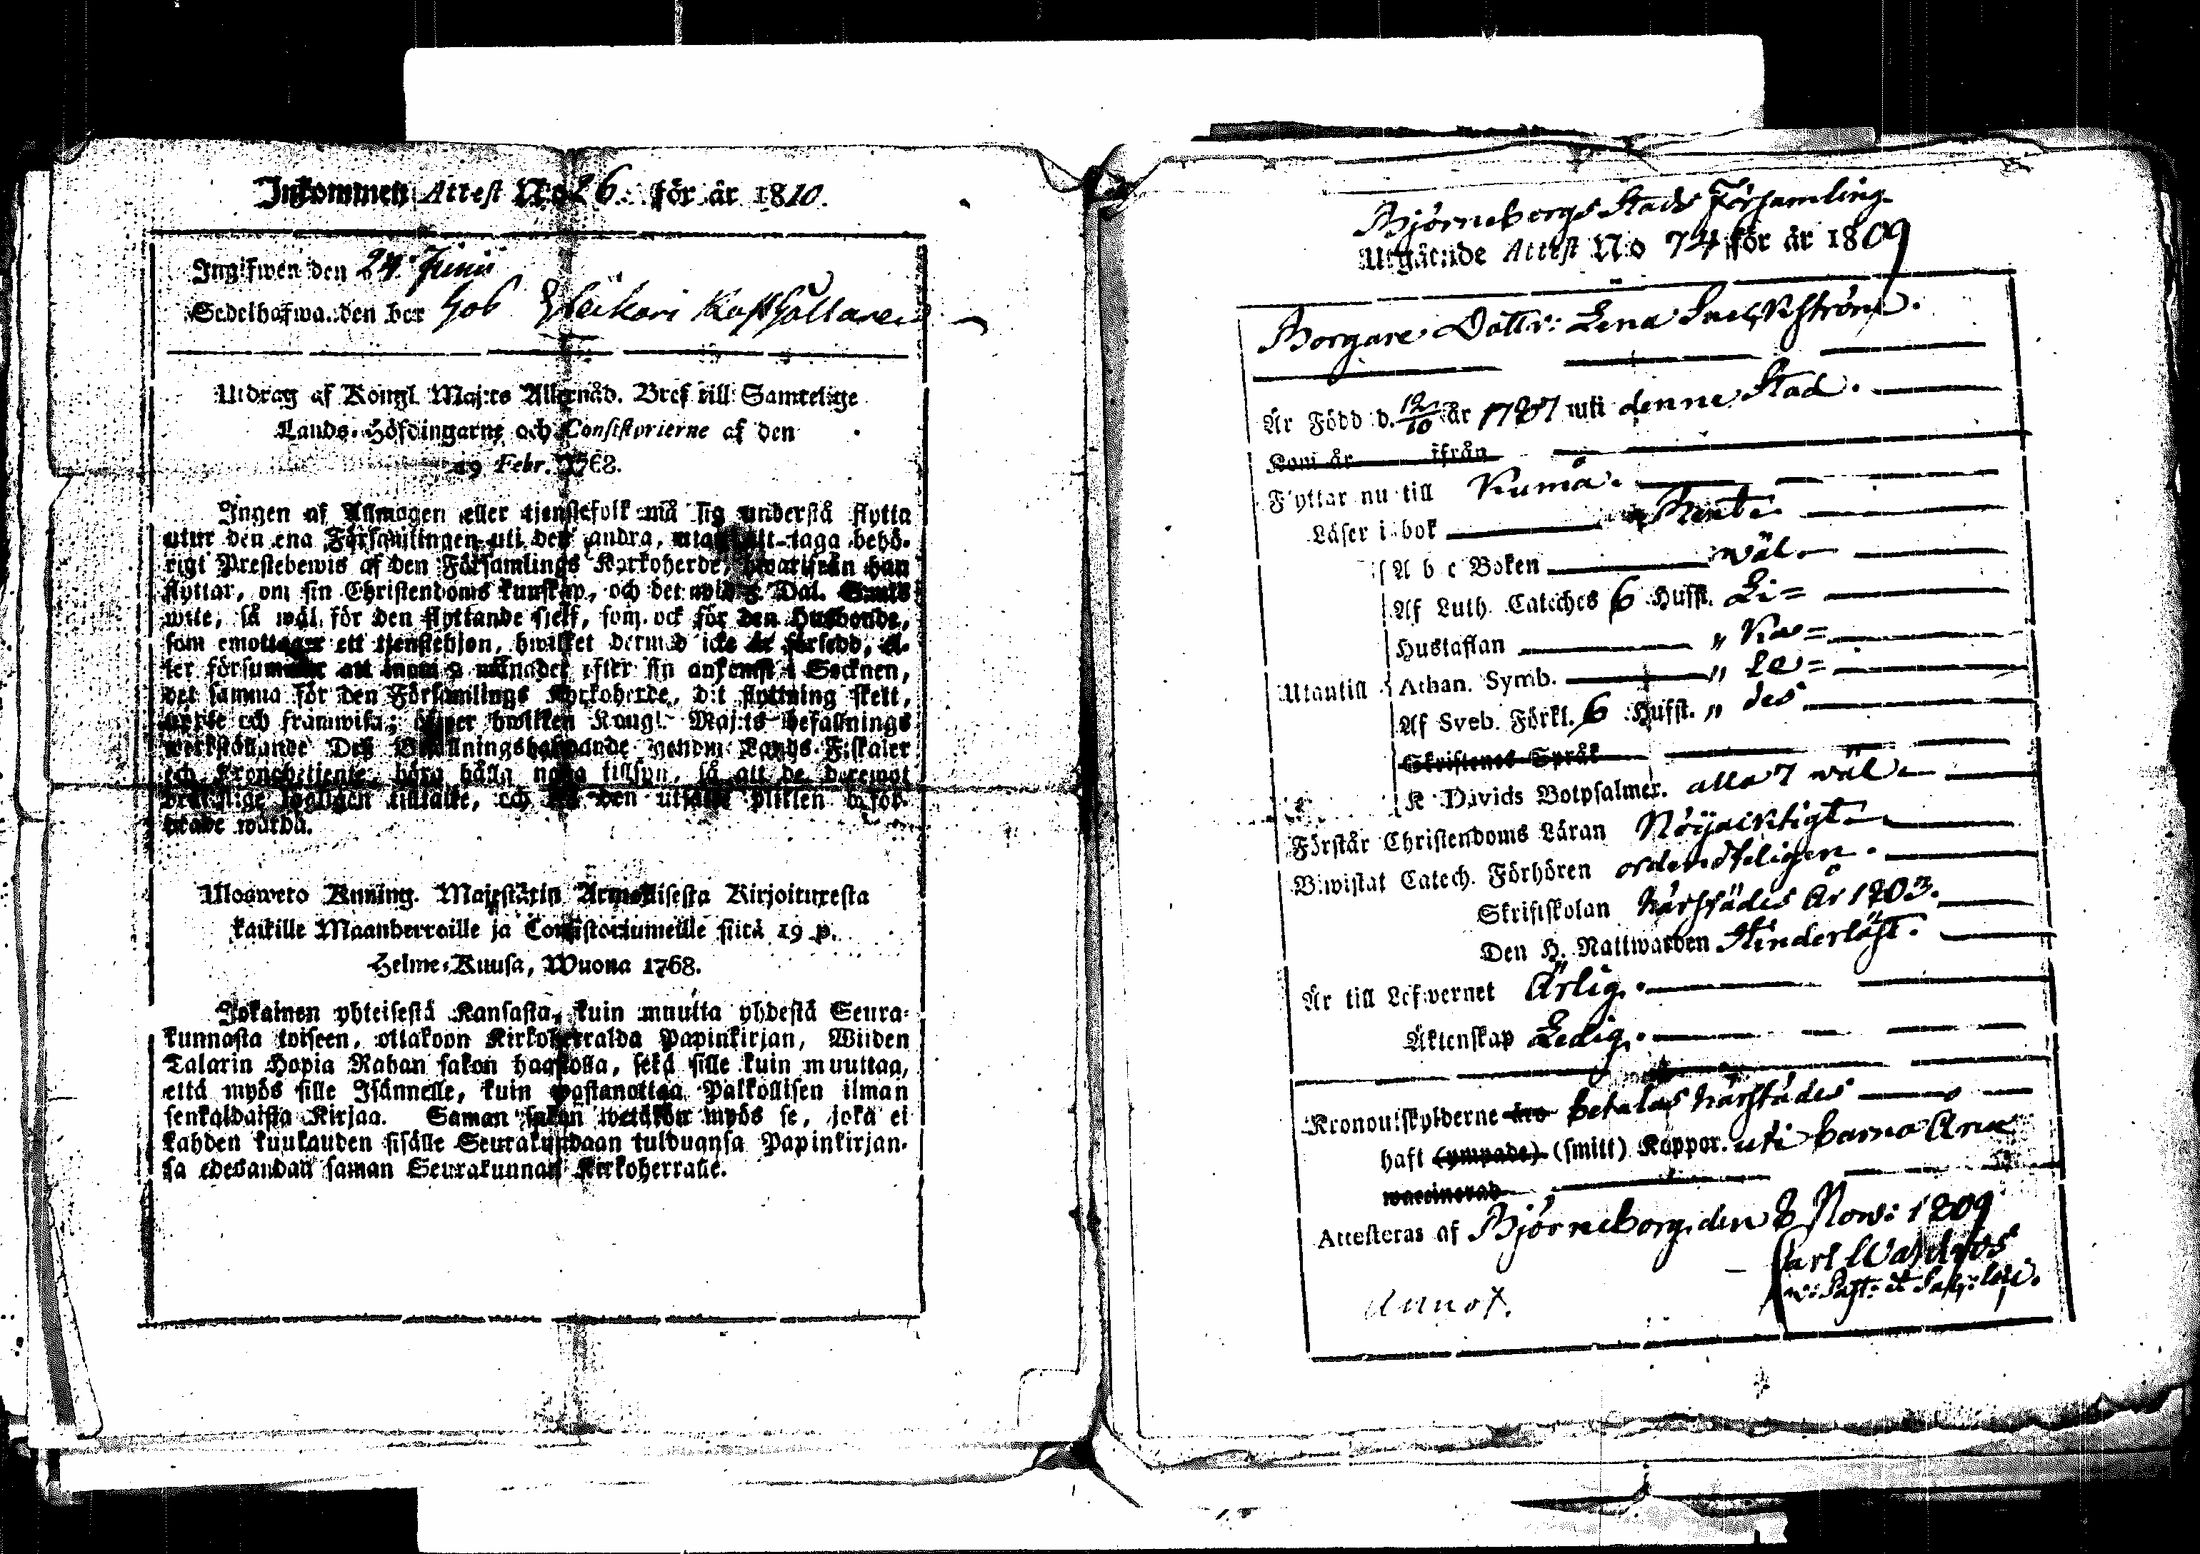 Inkommen Attest No 26. för år 1810.
Ingifwen den 24. Junii
Sedelhafwanden bor hos
Utdrag af Kongl. Maj:ts Allernåd. Bref till Samtelige
Lands-Höfdingarne och Consistorierne af den
19 Febr. 1768.
Ingen af Allmogen eller tjenstefolk må sig understå flytta
utur den ena Församlingen uti den andra, utan att taga behö-
rigt Prestebewis af den Församlings Kyrkoherde, hwarifrån han
flyttar, om sin Christendoms kunskap, och det wid 5 Dal. S:mts
wite, så wäl för den flyttande sjelf, som ock för den Husbonde,
som emottager ett tjenstehjon, hwilket dermed icke är försedd, el-
ler försummar att inom 2 månader efter sin ankomst i Socknen,
det samma för den Församlings Kyrkoherde, dit flyttning skett,
upte och framwisa; öfwer hwilken Kongl. Maj:ts befallnings
werkställande Deß Befallningshafwande genom Lands-Fiskaler
och Kronobetjente böra hålla noga tillsyn, så att de deremot
brottslige lagligen tilltalte, och til den utsatte plikten befor-
drade warda.
Uloswero Kuning. Majestätin Armollisesta Kirjoituxesta
kaikille Maanherroille ja Consistoriumeille siitä 19 p.
Helme-Kuusa, Wuona 1768.
Jokainen yhteisestä Kansasta, kuin muutta yhdestä Seura-
kunnasta toiseen, ottakoon Kirkoherralda Papinkirjan, Wiiden
Talarin Hopia Rahan sakon haastolla, sekä sille kuin muuttaa,
että myös sille Isännelle, kuin wastanottaa Palkollisen ilman
senkaldaista Kirjaa. Saman sakon wetäkön myös se, joka ei
kahden kuukauden sisälle Seurakundaan tulduansa Papinkirjan-
sa edesandan saman Seurakunnan Kirkoherralle.
Björneborgs Stads Församling
Utgående Attest No 74 för år 1809
Borgare Dottr: Lena
Är Född d. 12/10 år 1787 uti denne Stad.
Kom år ifrån
Flyttar nu till Kumå.
Läser i bok Rent
A b c Boken wäl
Af Luth. Cateches 6 Hufst. Li=
Hustaflan " Ka=
Utantill Athan. Symb. " le=
Af Sveb. Förkl. 6 Hufst. " des
Skriftenes Språk
K Davids Botpsalmer. alla 7 wäl
Förstår Christendoms Läran Nöijacktigt
Biwistat Catech. Förhören ordendteligen.
Skriftskolan härstädes År 1803.
Den H. Nattwarden Hinderlöst.
Är till Lefwernet Ärlig.
Äktenskap Ledig.
Kronoutskylderne äro betalas härstädes
haft (ympade) (smitt) Koppor. uti barna Åren
waccinerad
Attesteras af Björneborg, den 8 Nov: 1809
Carl
Annot.